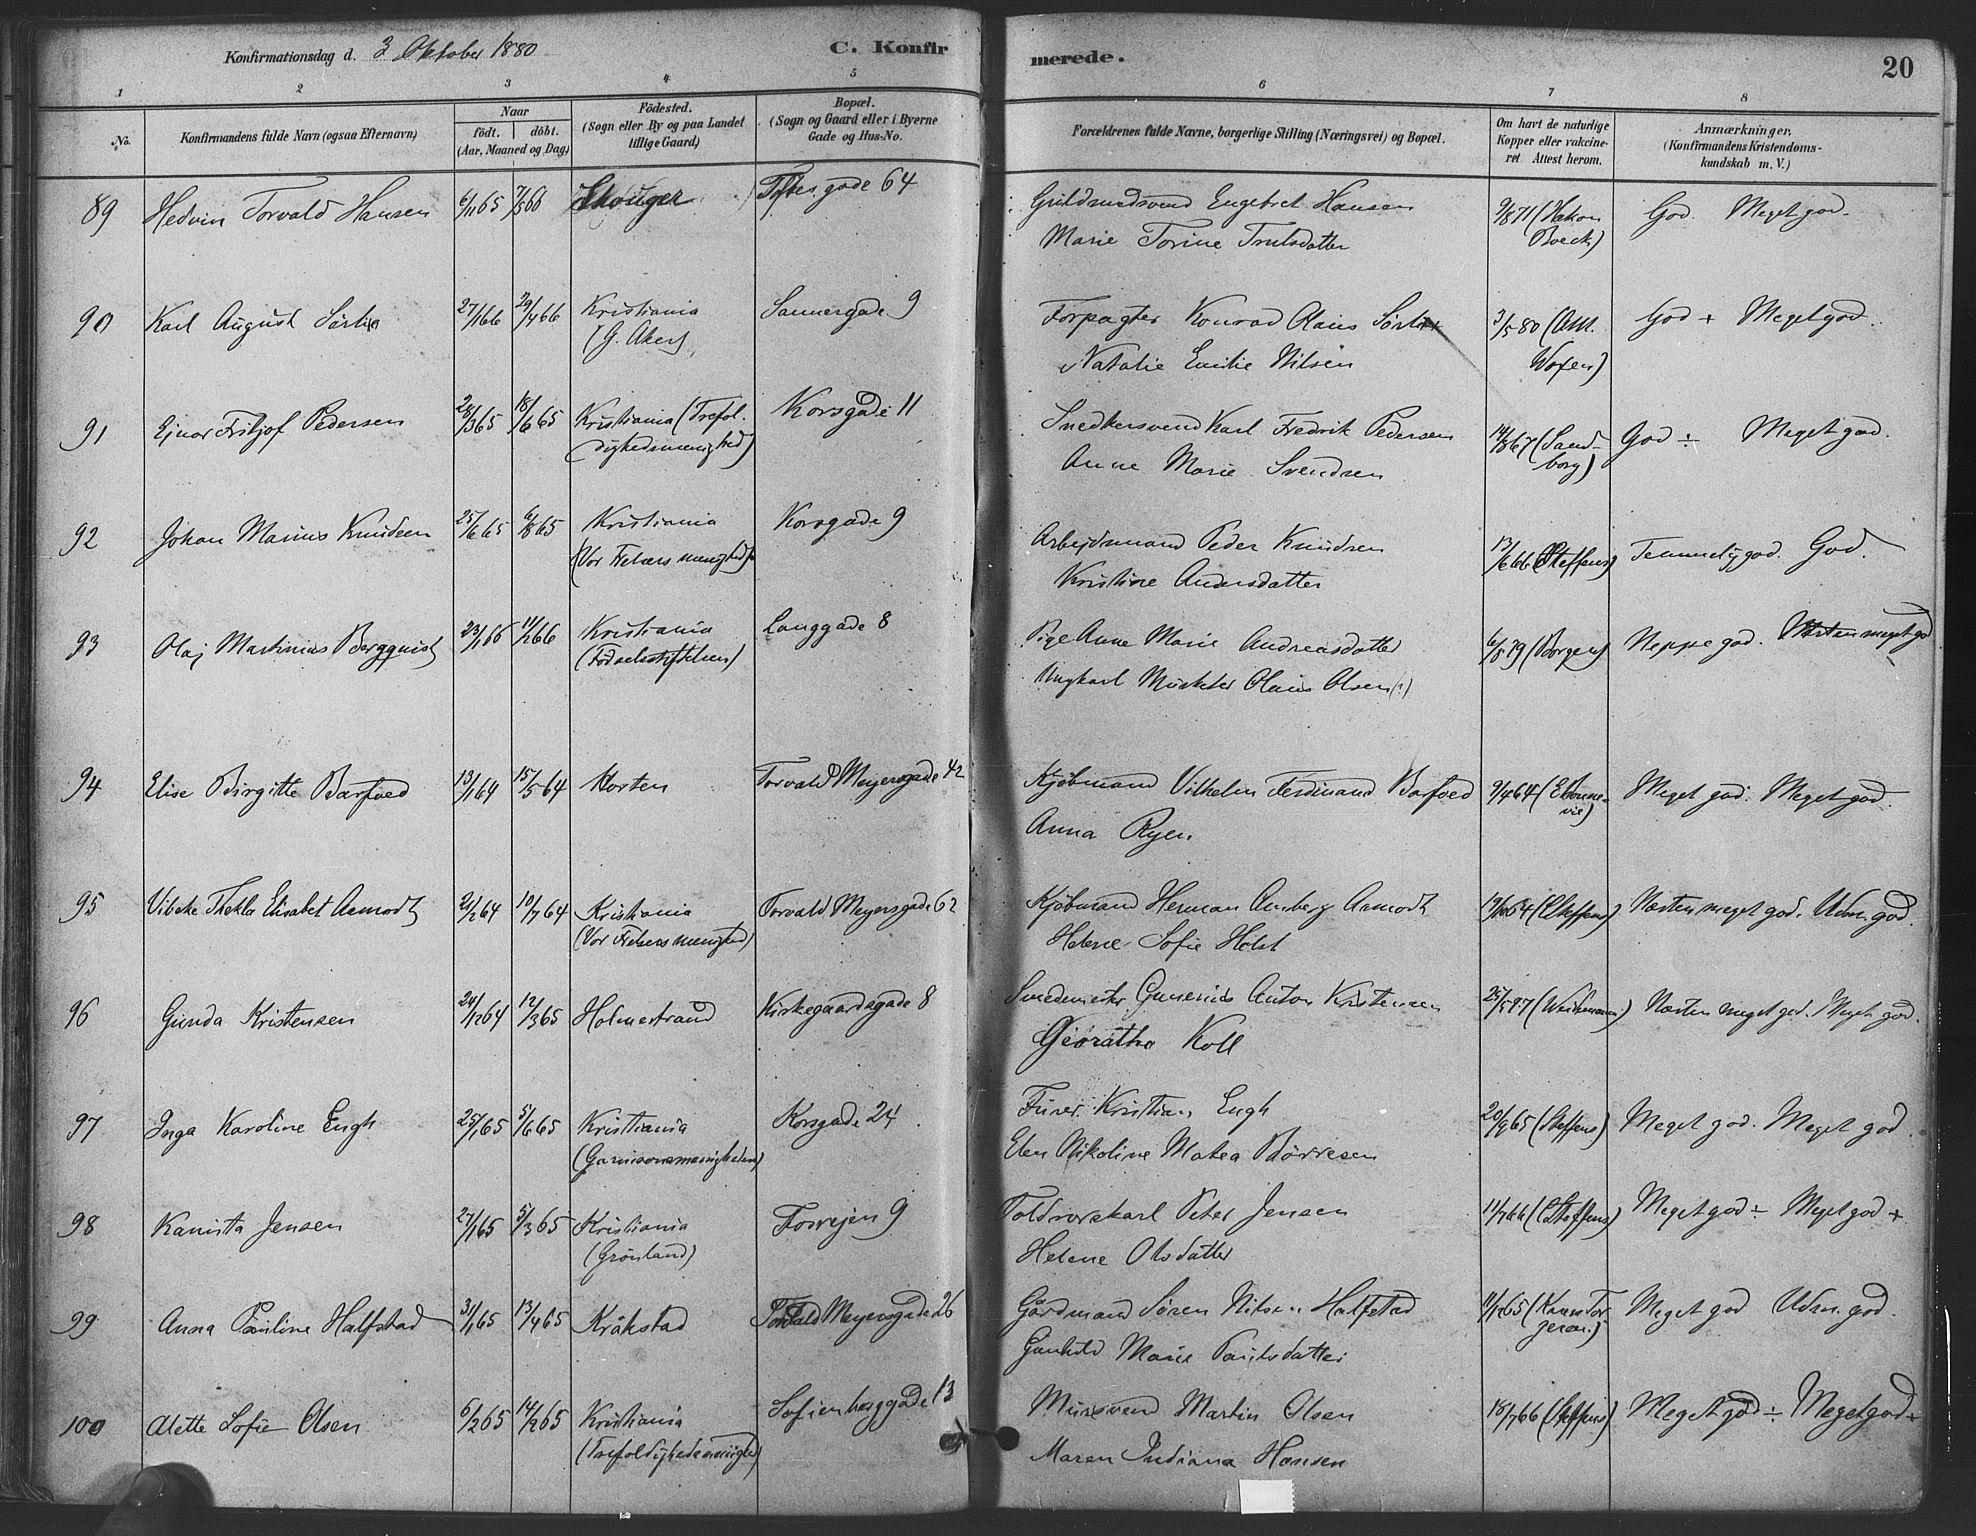 Konfirmationsdag d. 3 Oktober 1880
C. Konfir
merede.
20
1 2 3 4 5 6 7 8
No.
Konfirmandens fulde Navn (ogsaa Efternavn)
Naar
födt. döbt.
(Aar, Maaned og Dag)
Födested.
(Sogn eller By og paa Landet
tillige Gaard)
Bopæl.
(Sogn og Gaard eller i Byerne
Gade og Hus-No.
Forældrenes fulde Navne, borgerlige Stilling (Næringsvei) og Bopæl.
Om havt de naturlige
Kopper eller vakcine-
ret. Attest herom.
Anmærkninger.
(Konfirmandens Kristendoms-
kundskab m. V.)
89 Hedvin Torvald Hansen 6/11 65 7/5 66 Skoüger Toftesgade 64 Guldsmedsvend Engebret Hansen 9/8 71 (Hakon God. Meget god.
Marie Torine Trulsdatter Boeck)
90 Karl August Sørlie 27/1 66 29/4 66 Kristiania Sannergade 9 Forpagter Konrad Olaus Sørlie 3/5 80 (AM. God + Meget god.
(G. Aker) Natalie Emilie Nilsen Woxen)
91 Ejnar Fritjof Pedersen 28/3 65 18/6 65 Kristiania (Trefol- Korsgade 11 Snedkersvend Karl Fredrik Pedersen 14/8 67 (Sand- God ÷ Meget god.
dighedsmenighed) Anne Marie Svendsen borg)
92 Johan Marius Knudsen 25/6 65 6/8 65 Kristiania Korsgade 9 Arbejdsmand Peder Knudsen 13/6 66 (Steffens) Temmelig god. God.
(Vor Frelsers menighed) Kristine Andersdatter
93 Olaj Martinius Bergquist 23/1 66 11/2 66 Kristiania Langgade 8 Pige Anne Marie Andreasdatter 6/8 79 (Borgen) Neppe god. Næsten meget god
(Fødselsstiftelsen) Ungkarl Musketer Olaus Olsen (?)
94 Elise Birgitte Barfoed 13/1 64 15/5 64 Horten Torvald Meyersgade 42 Kjøbmand Vilhelm Ferdinand Barfoed 9/4 64 (E Bonne- Meget god. Meget god.
Anna Ryen vie)
95 Vibeke Thekla Elisabet Aamodt 21/2 64 10/7 64 Kristiania Torvald Meyersgade 62 Kjøbmand Herman Amberg Aamodt (Steffens) Næsten meget god. Udm. god.
(Vor Frelsers menighed) Helene Sofie Holst
96 Gunda Kristensen 24/12 64 12/3 65 Holmestrand Kirkegaardsgade 8 Smedmester Gunerius Anton Kristensen Næsten meget god. Meget god.
Koll
97 Inga Karoline Engh 25/1 65 5/6 65 Kristiania Korsgade 24 Furer Kristian Engh 20/9 65 (Steffens) Meget god. Meget god.
(Garnisonsmenigheden) Elen Nikoline Matea Børresen
98 Kamitta Jensen 27/1 65 5/3 65 Kristiania Fosvejen 9 Toldrorskarl Peter Jensen 11/7 66 (Steffens) Meget god ÷ Meget god +
(Grønland) Helene Olsdatter
99 Anna Pauline Halfstad 3/1 65 13/4 65 Kråkstad Torvald Meyersgade 26 Gårdmand Søren Nilsen Halfstad Meget god Udm. god.
Gunhild Marie Paulsdatter
100 Alette Sofie Olsen 6/2 65 14/9 65 Kristiania Sofienberggade 13 Mursvend Martin Olsen 18/7 66 (Steffens) Meget god ÷ Meget god +
(Trefoldighedsmenighed) Maren Indiana Hansen